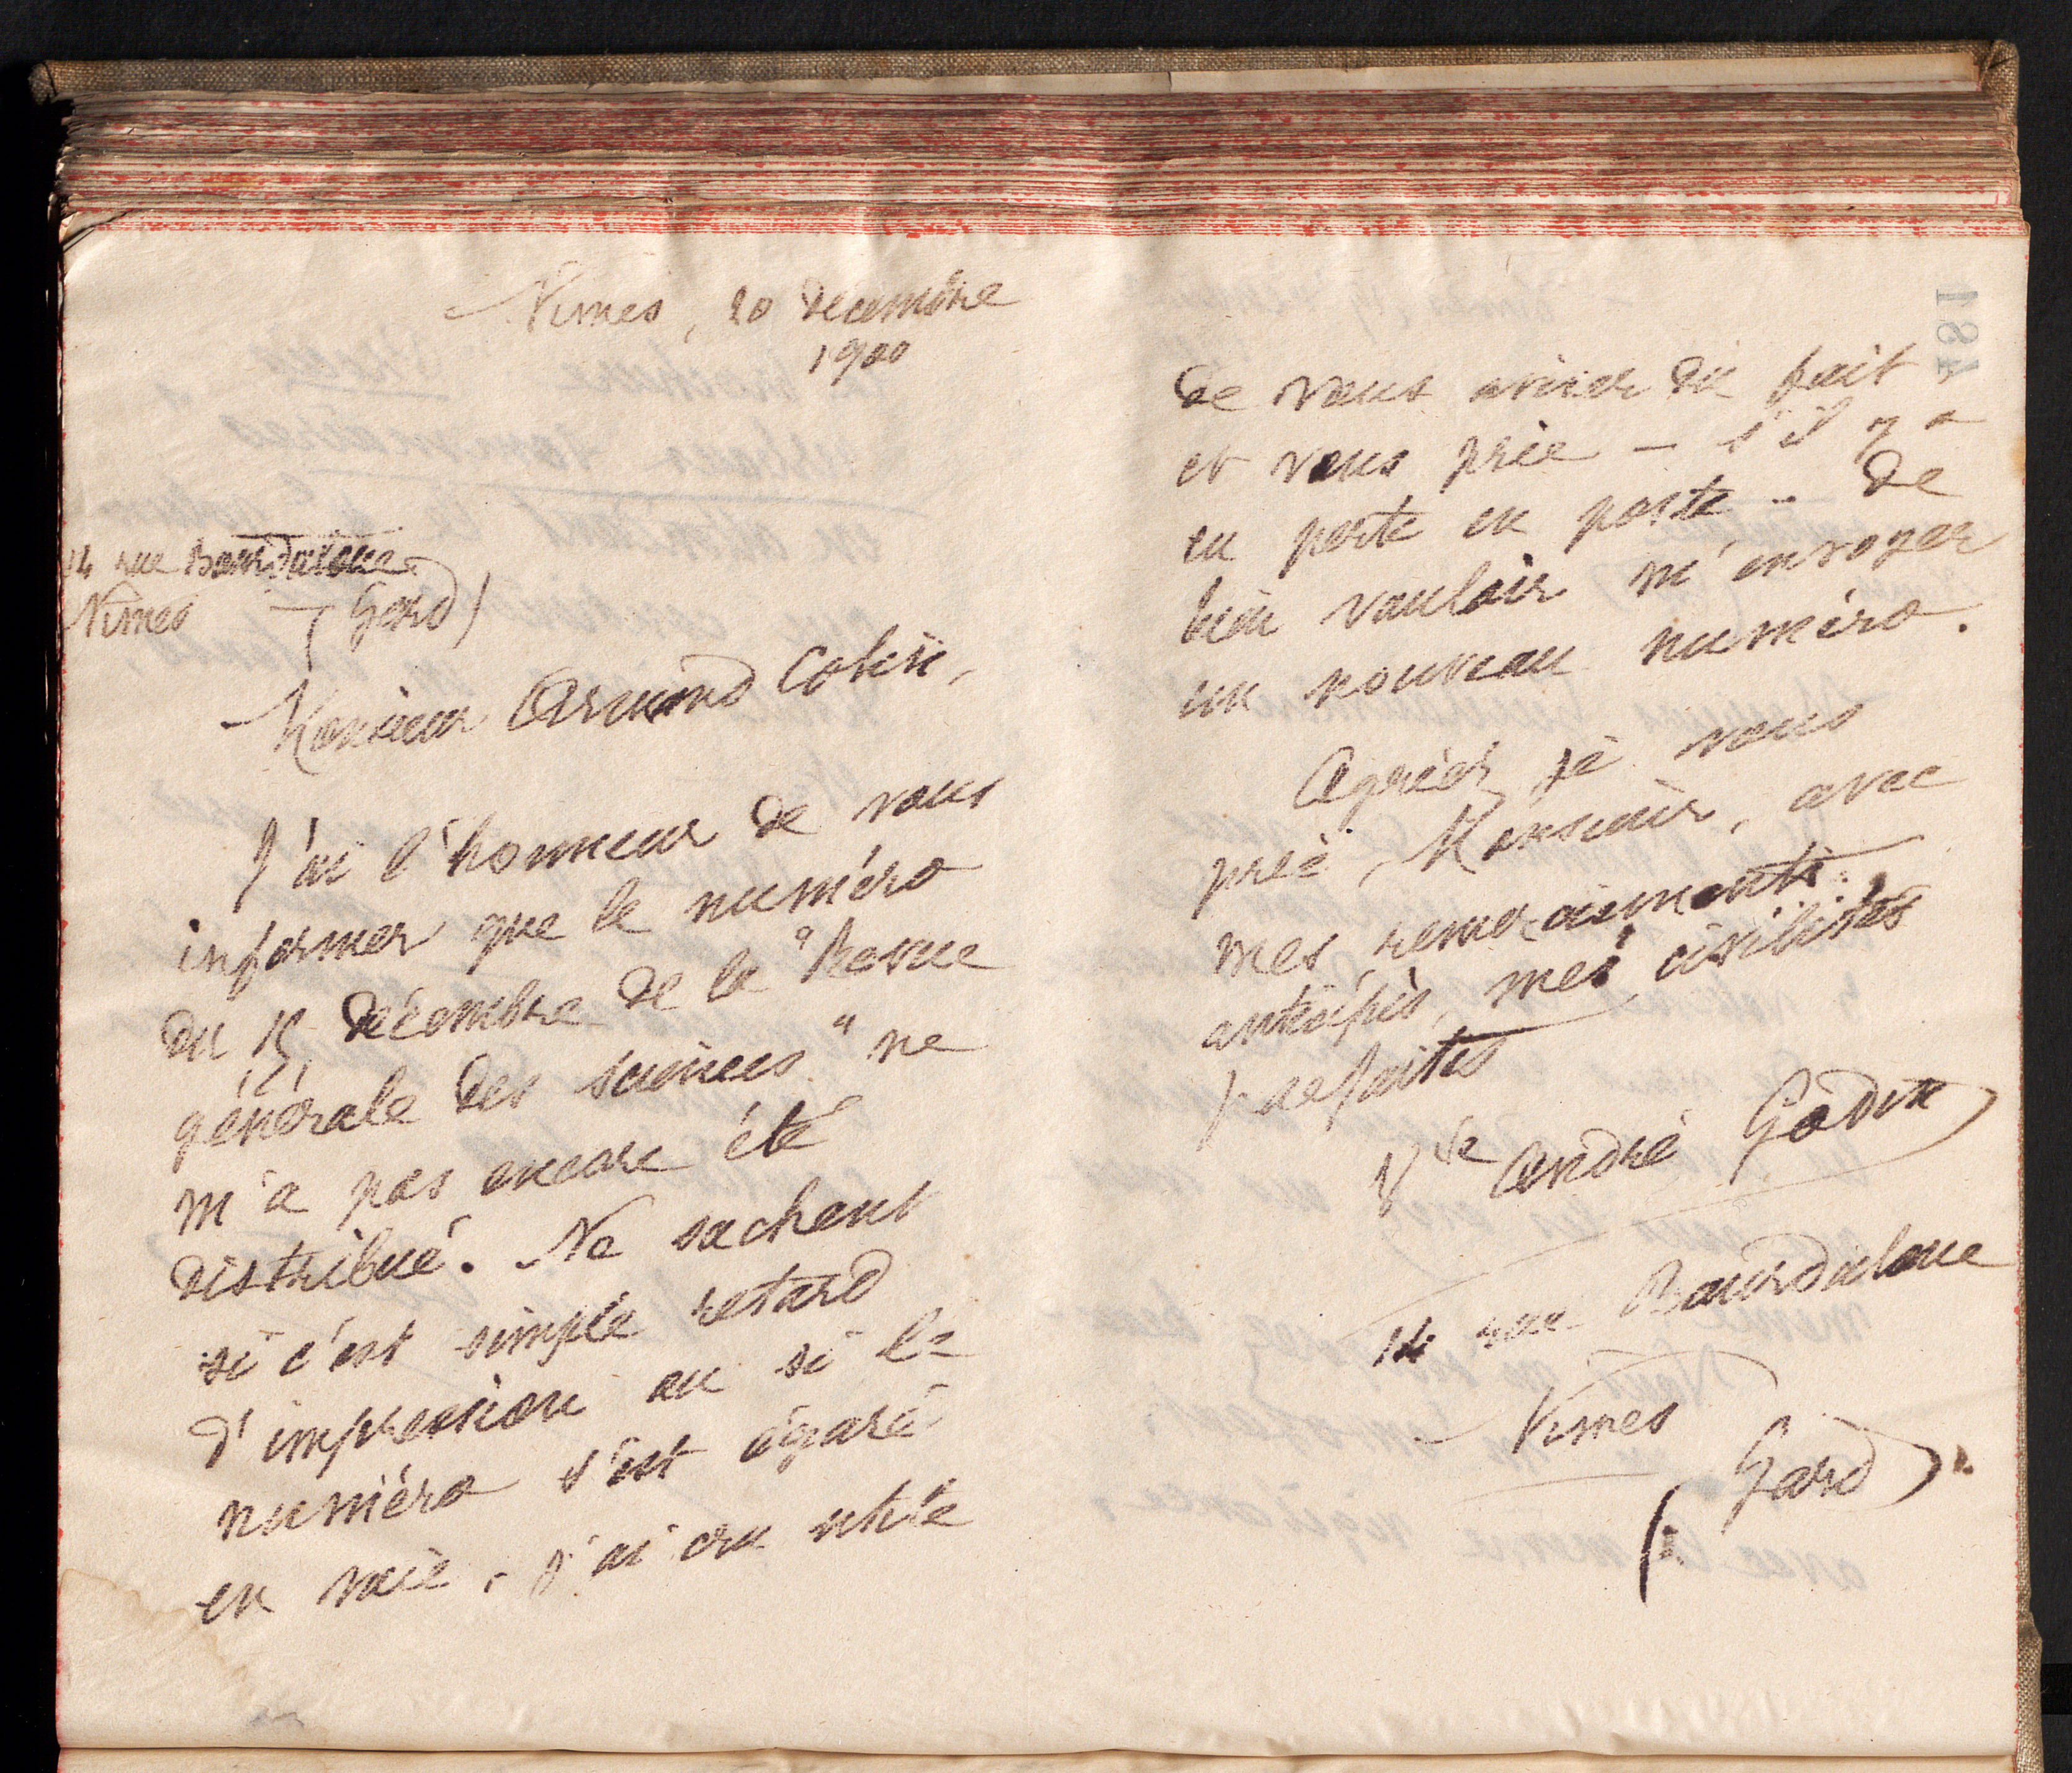 Nimes, 20 décembre
1900
14 rue Bourdaloue
Nimes (Gard)
Monsieur Armand Colin,
J'ai l'honneur de vous
informer que le numéro
du 15 décembre de la "Revue
générale des sciences" ne
m'a pas encore été
distribué. Ne sachant
si c'est simple retard
d'impression ou si le
numéro s'est égaré
en voie, j'ai cru utile
de vous aviser du fait
et vous prie - s'il y a
eu perte en poste - de
bien vouloir m'envoyer
un nouveau numéro.
Agréez, je vous
prie, Monsieur, avec
mes remerciements
anticipés, mes civilités
parfaites
Vve André Godin
14 rue Bourdaloue
Nimes
(Gard).